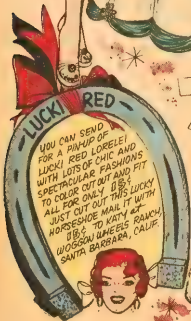 LUCKI RED
YOU CAN SEND
FOR A PIN-UP OF
LUCKI RED LORELEI
WITH LOTS OF CHIC AND
SPECTACULAR FASHIONS
TO COLOR CUT OUT AND FIT
ALL FOR ONLY
JUST CUT OUT THIS LUCKY
HORSESHOE MAIL IT WITH
TO KATY at
WOGGON WHEELS RANCH,
SANTA BARBARA, CALIF.